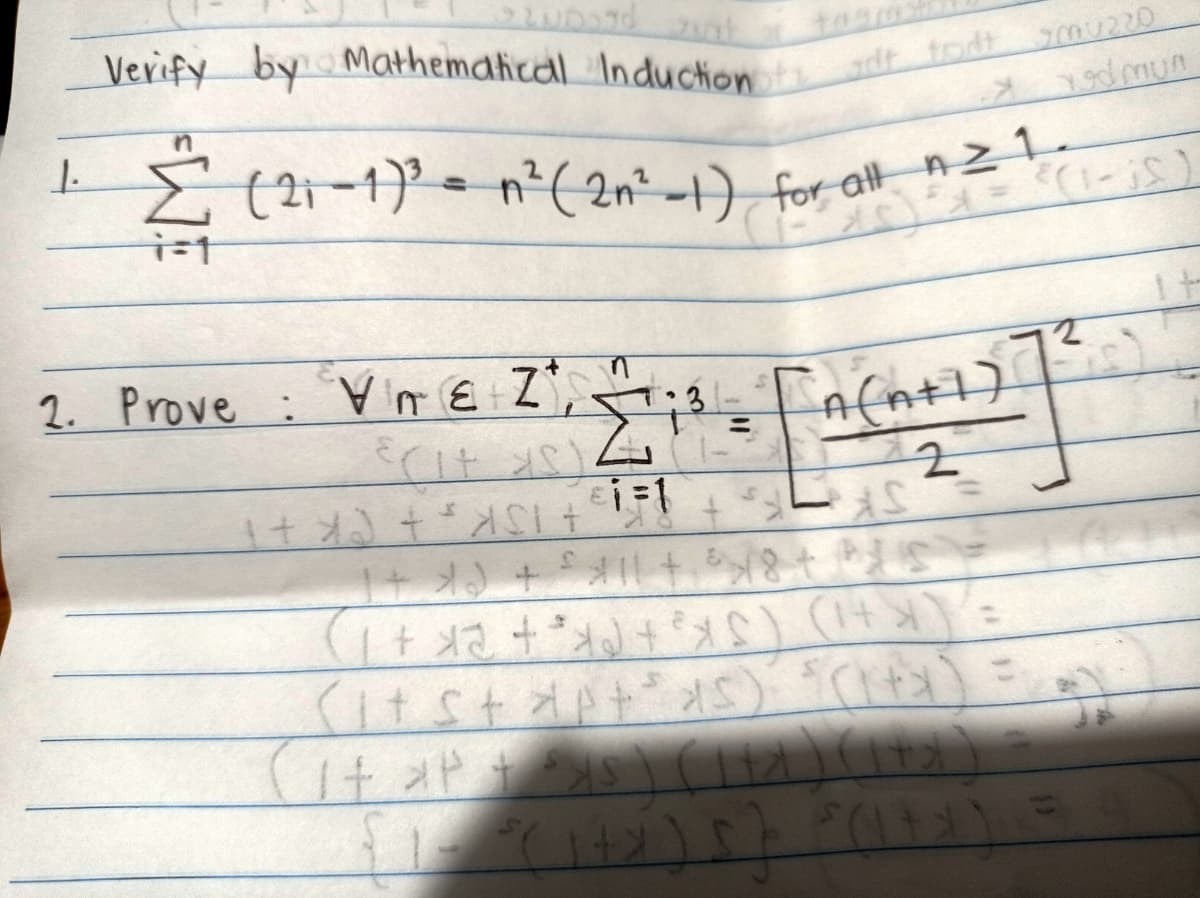 Verify by Mathematical Induction
1. $\sum_{i=1}^{n} (2i-1)^3 = n^2(2n^2-1)$ for all $n \geq 1$.
2. Prove : $\forall n \in Z^+, \sum_{i=1}^{n} i^3 = \left[\frac{n(n+1)}{2}\right]^2$